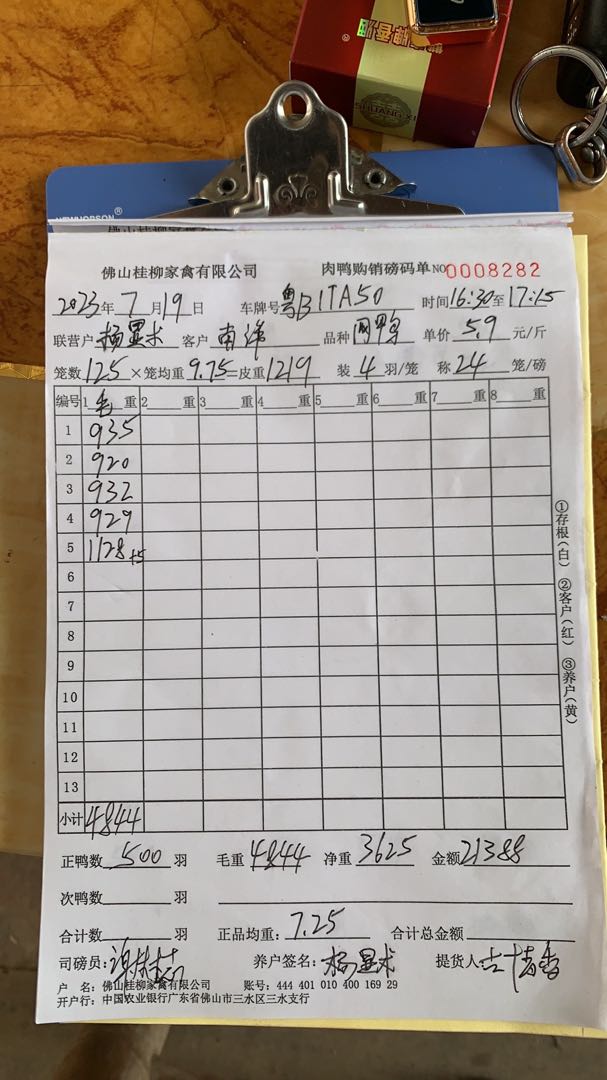 SHUANG XI
NEWHOPSON®
佛山桂柳家禽有限公司 肉鸭购销磅码单 NO 0008282
2023年 7月19日 车牌号 粤B1TA50 时间16:30至17:15
联营户 杨显术 客户 南洋 品种 网鸭 单价 5.9 元/斤
笼数 125 ×笼均重 9.75 =皮重 1219 装 4 羽/笼 称 24 笼/磅
编号 1 毛 重 2 重 3 重 4 重 5 重 6 重 7 重 8 重
1 935
2 920
3 932
4 929
5 1128+5
6
7
8
9
10
11
12
13
小计 4844
①存根(白) ②客户(红) ③养户(黄)
正鸭数 500 羽 毛重 4844 净重 3625 金额 21388
次鸭数 羽
合计数 羽 正品均重: 7.25 合计总金额
司磅员: 养户签名: 杨显术 提货人
户 名: 佛山桂柳家禽有限公司 账号: 444 401 010 400 169 29
开户行: 中国农业银行广东省佛山市三水区三水支行